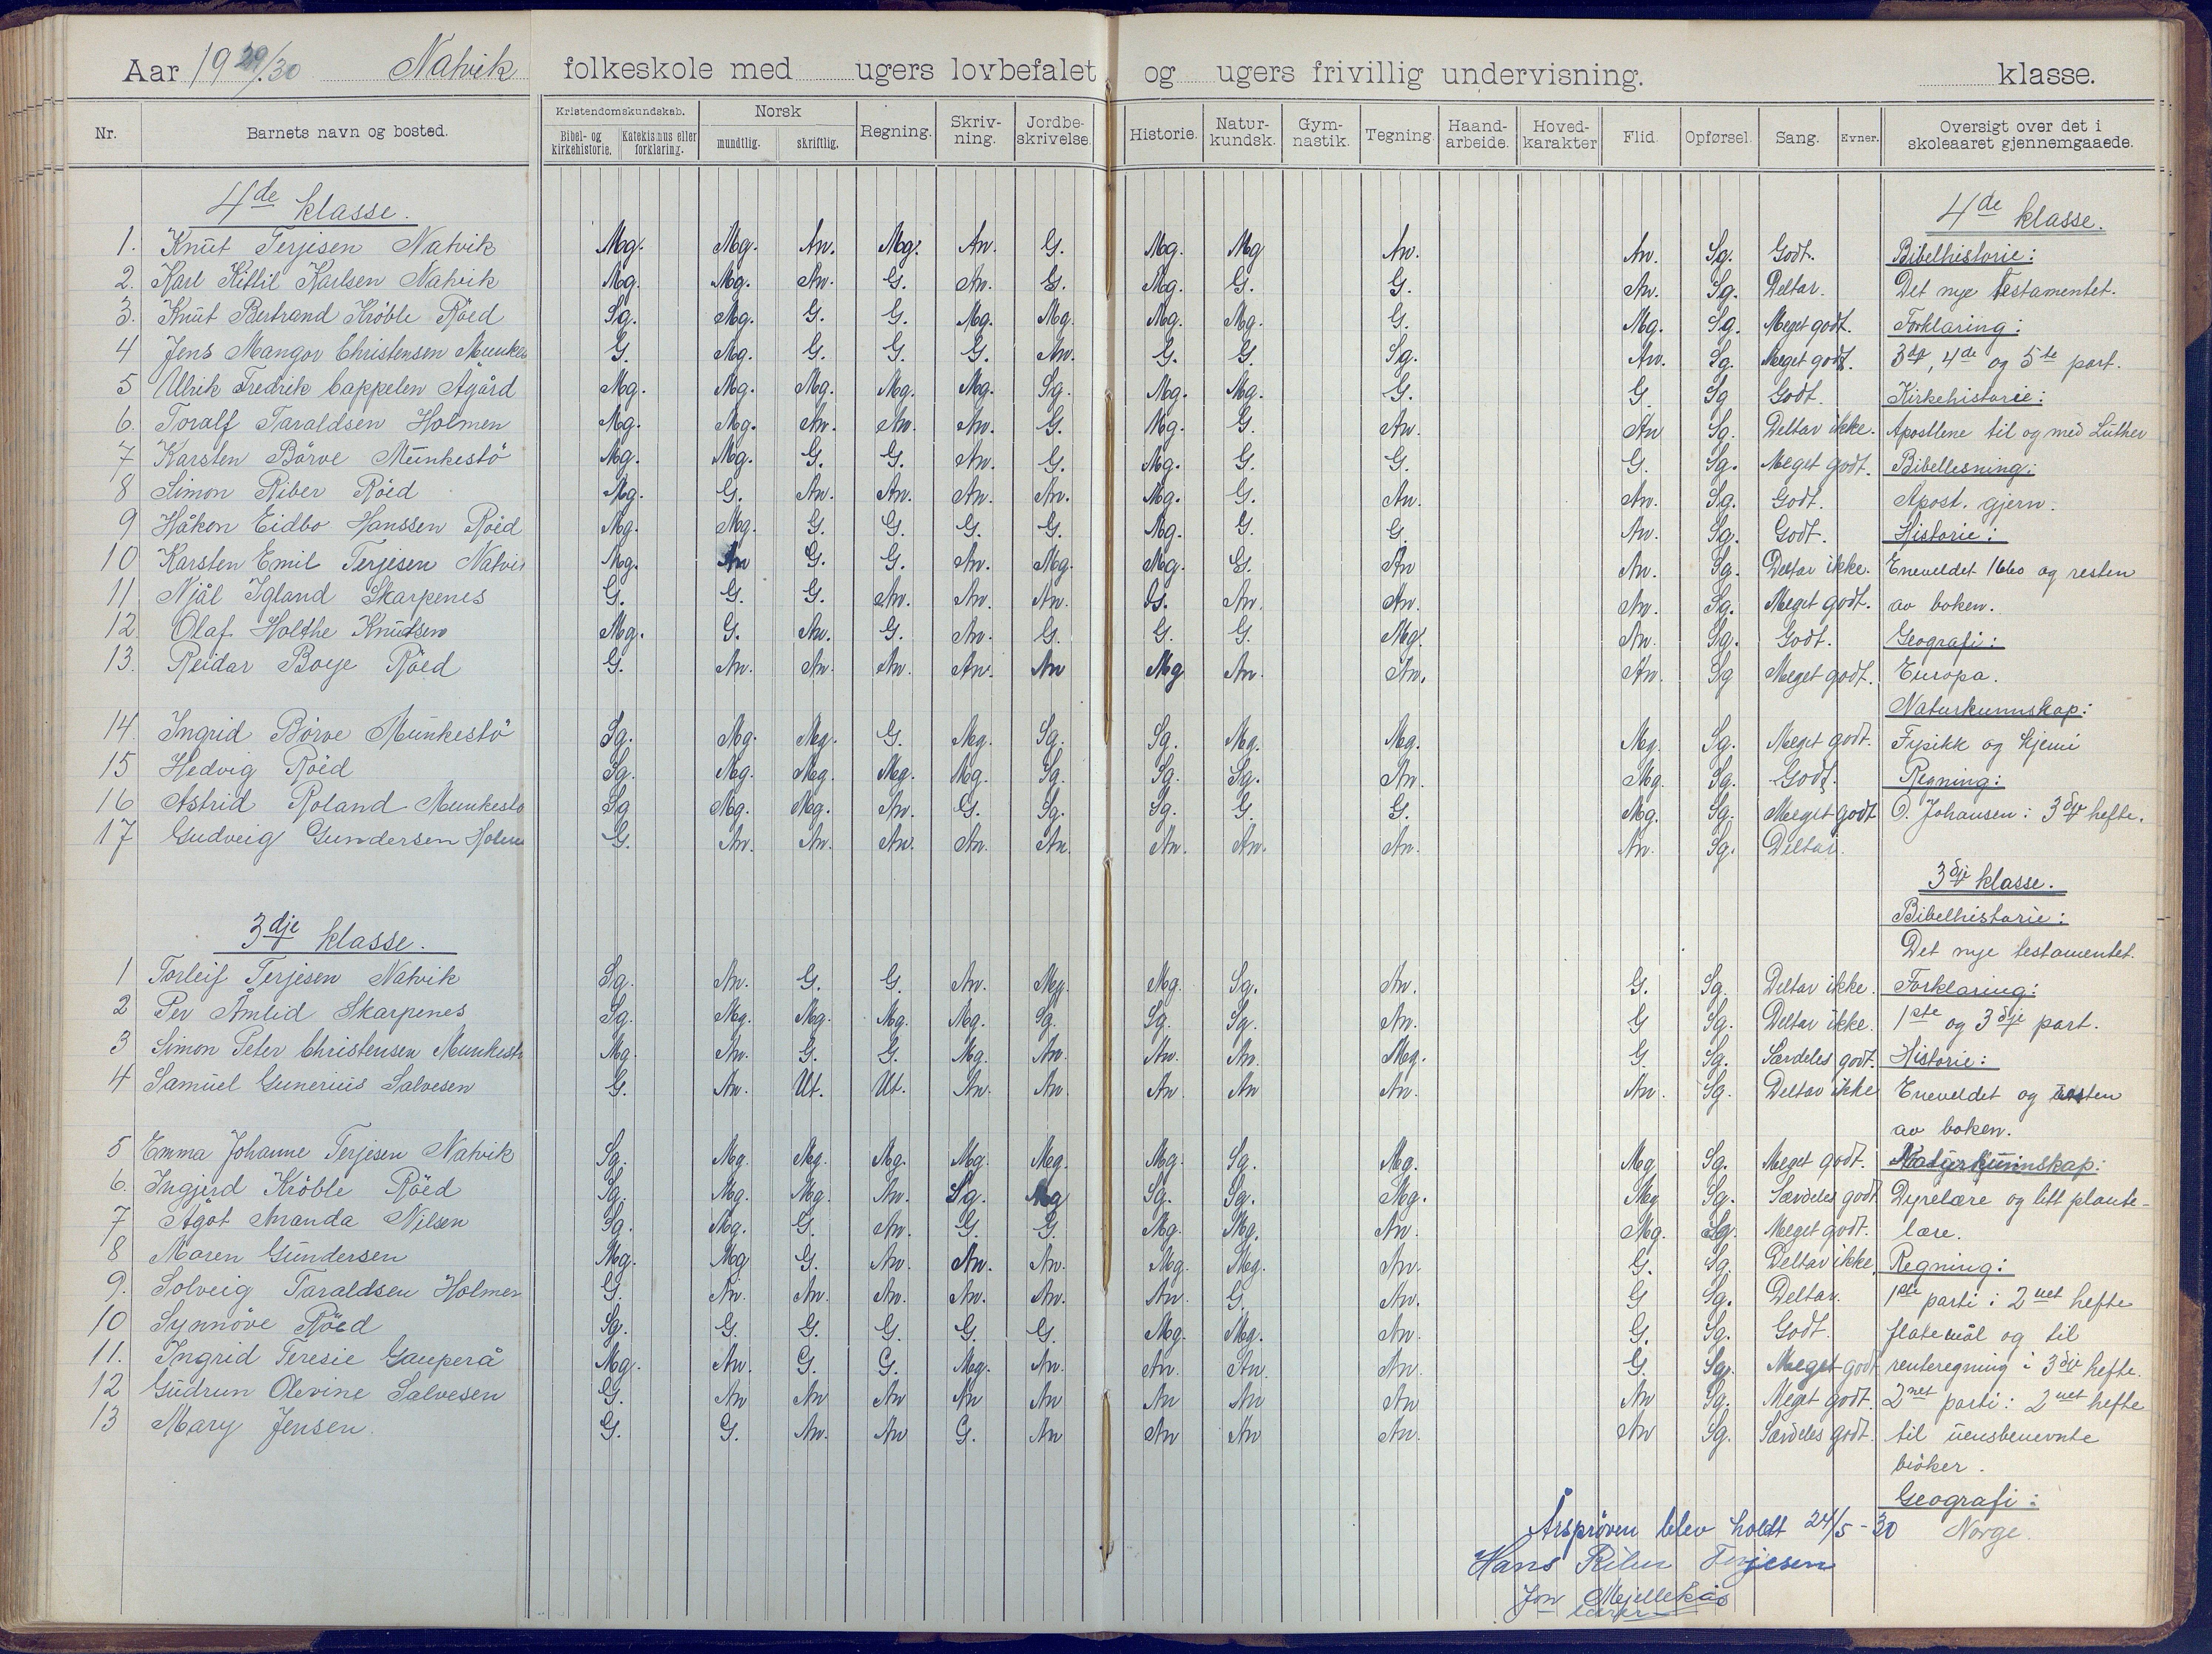 Aar 1929/30 Natvik folkeskole med ugers lovbefalet og ugers frivillig undervisning. klasse.
Nr. Barnets navn og bosted. Kristendomskundskab. Bibel- og kirkehistorie. Katekismus eller forklaring. Norsk mundtlig. skriftlig. Regning. Skriv-ning. Jordbe-skrivelse. Historie. Natur-kundsk. Gym-nastik. Tegning. Haand-arbeide. Hoved-karakter Flid. Opførsel. Sang. Evner. Oversigt over det i skoleaaret gjennemgaaede.
4de klasse. 4de klasse.
1. Knut Terjesen Natvik Mg. Mg. An. Mg. An. G. Mg. Mg An. An. Sg. Godt. Bibelhistorie:
2. Karl Kittil Karlsen Natvik Mg. Mg. An. G. An. G. Mg. G. G. An. Sg. Deltar. Det nye testamentet.
3. Knut Bertrand Kröble Röed Sg. Mg. G. G. Mg. Mg. Mg. Mg. G. Mg. Sg. Meget godt. Forklaring:
4 Jens Mangor Christensen Munkes G. Mg. G. G. G. An. G. G. Sg. An. Sg. Meget godt. 3dje, 4de og 5te part.
5 Ulrik Fredrik Cappelen Ågård Mg. Mg. Mg. Mg. Mg. Sg. Mg. Mg. G. G Sg Godt. Kirkehistorie:
6. Toralf Taraldsen Holmen Mg. Mg. An. An. An. G. Mg. G. An. An Sg. Deltar ikke. Apostlene til og med Luther
7 Karsten Börve Munkestö Mg. Mg. G. G. An. G. Mg. G. G. G. Sg. Meget godt. Bibellesning:
8 Simon Riber Röed Mg. G. An. An. An. An. Mg. G. An. An. Sg. Godt. Apost. gjern.
9 Håkon Eidbo Hanssen Röed Mg. Mg. G. G. G. G. Mg. G. G. An. Sg. Godt. Historie:
10 Karsten Emil Terjesen Natvi Mg. An G. G. An. Mg. Mg. G. An An. Sg. Deltar ikke. Eneveldet 1660 og resten
11 Njål Igland Skarpenes G. G. G. An. An. An. G. An. An. An. Sg. Meget godt. av boken.
12. Olaf Holthe Knudsen Mg. G. An. G. An. G. G. G. Mg. An. Sg. Godt. Geografi:
13. Reidar Boye Röed G. An. An. An. An. An Mg An. An. An. Sg Meget godt. Europa.
Naturkunnskap:
14. Ingrid Börve Munkestö Sg. Mg. Mg. G. Mg. Sg. Sg. Mg. Mg. Mg. Sg. Meget godt. Fysikk og kjemi
15 Hedvig Röed Sg. Mg. Mg. Mg. Mg. Sg. Sg. Sg. An. Mg. Sg. Godt. Regning:
16 Astrid Roland Munkestö Sg Mg. Mg. An. G. Sg. Sg. G. G. Mg. Sg. Meget godt O. Johansen: 3dje hefte.
17 Gudveig Gundersen Holme G. An. An. An. An. An. An. An. An. An. Sg. Deltar.
3dje klasse.
Bibelhistorie:
3dje klasse. Det nye testamentet.
1 Torleif Terjesen Natvik Sg. An. G. G. An. Mg. Mg. Sg. An. G. Sg. Deltar ikke. Forklaring:
2 Per Åmlid Skarpenes Sg. Mg. Mg. Mg. Mg. Sg. Sg. Sg. An. G Sg. Deltar ikke. 1ste og 3dje part.
3 Simon Peter Christensen Munkest Mg. An. G. G. Mg. An. An. An. Mg. G. Sg. Særdeles godt. Historie:
4 Samuel Gunerius Salvesen G. An. Ut. Ut. An. An. An. An An. An. Sg. Deltar ikke Eneveldet og resten
av boken.
5 Emma Johanne Terjesen Natvik Sg. Mg. Mg. Mg. Mg. Mg. Mg. Sg. Mg. Mg Sg. Meget godt. Naturkunnskap:
6. Ingjerd Kröble Röed Sg. Mg. Mg. An. Sg. Mg Sg. Sg. Mg. Mg Sg. Særdeles godt Dyrelære og litt plante-
7 Ågot Amanda Nilsen Sg. Mg. G. An. G. G. Mg. Mg. An. Mg. Sg. Meget godt. lære.
8 Maren Gundersen Mg. Mg G. An. An. An. Mg. Mg. An. G. Sg. Deltar ikke. Regning:
9. Solveig Taraldsen Holmen G. An. An. An. An. An. An. G. An. G Sg. Deltar. 1ste parti: 2net hefte
10 Synnöve Röed Sg. G. G. G. G. G. Mg. Mg. An. G. Sg. Godt. flatemål og til
11. Ingrid Teresie Gauperå Mg. An. G. G. Mg. An. An. An. An. G. Sg. Meget godt renteregning i 3dje hefte.
12 Gudrun Olevine Salvesen G. An An An An An An An An An Sg. Meget godt. 2net parti: 2net hefte
13 Mary Jensen. G. G. An. An G. An An An An. An Sg. Særdeles godt. til uensbenevnte
bröker.
Geografi:
Årsprøven blev holdt 24/5 - 30 Norge.
Hans Riber Terjesen
Jon Mjellekås
lærer